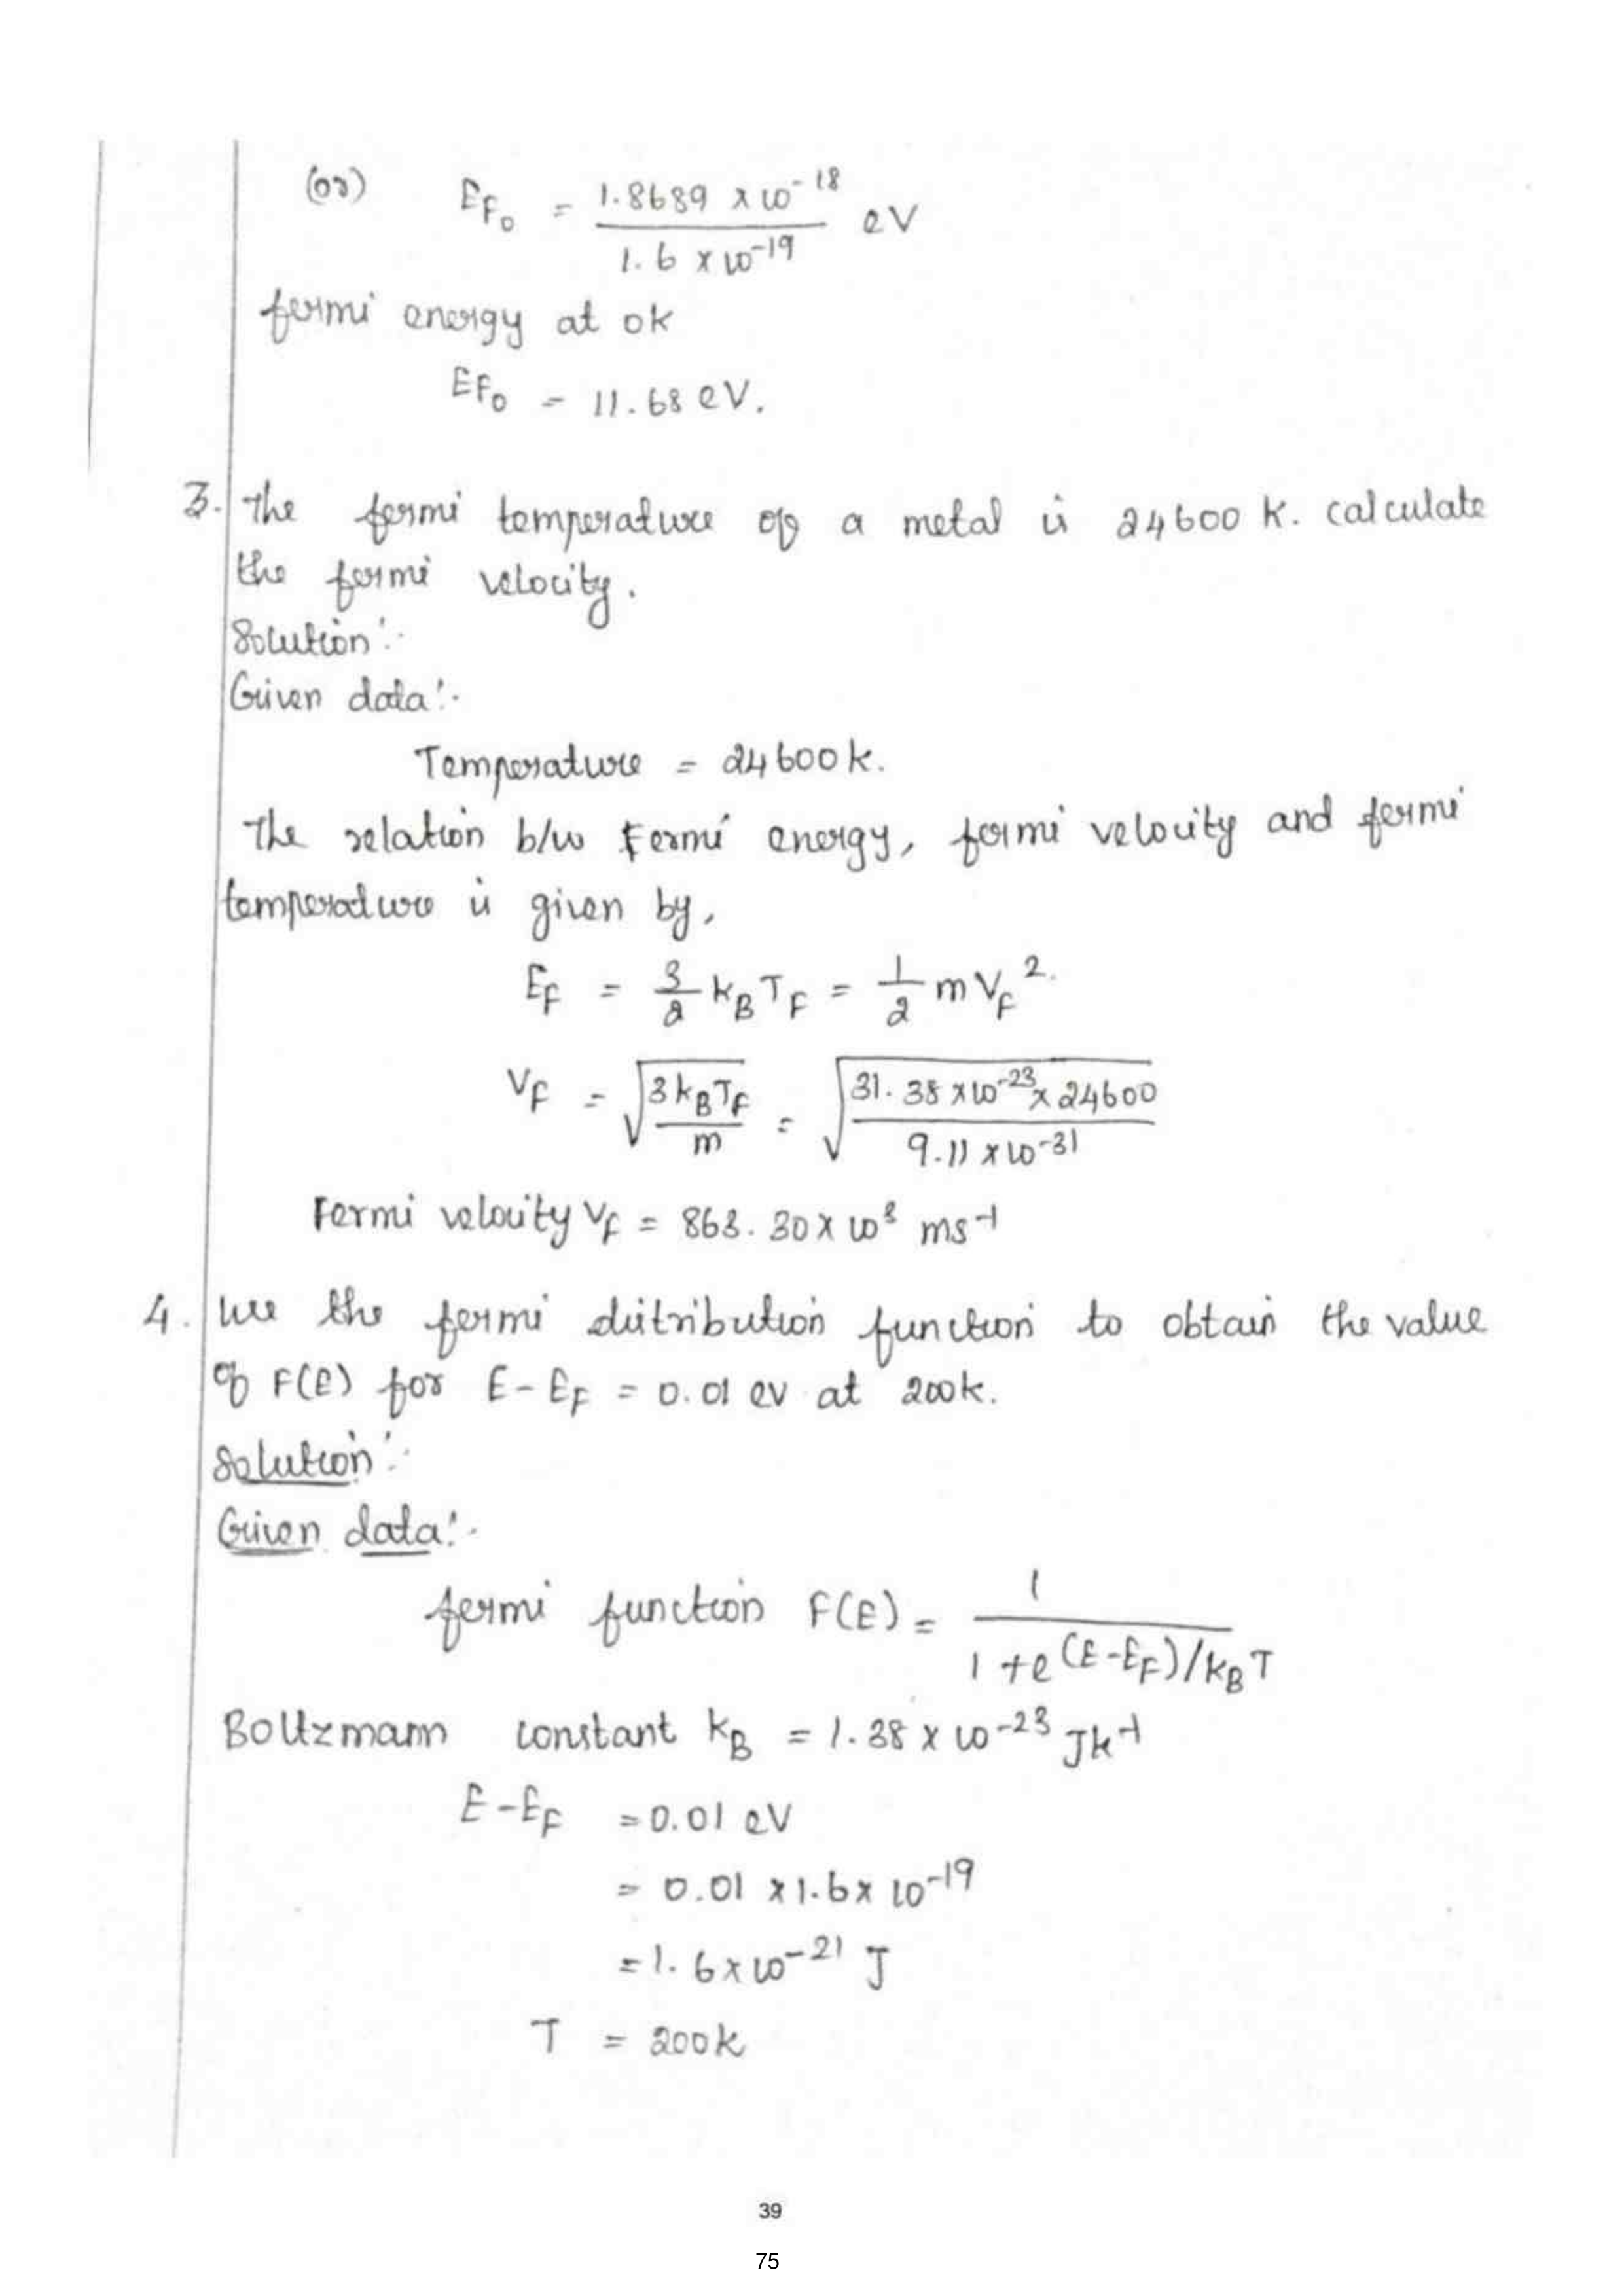 (or) E_F₀ = 1.8689 × 10⁻¹⁸ / 1.6 × 10⁻¹⁹ eV
fermi energy at 0k
E_F₀ = 11.68 eV.
3. The fermi temperature of a metal is 24600 K. calculate
the fermi velocity.
Solution:-
Given data:-
Temperature = 24600k.
The relation b/w Fermi energy, fermi velocity and fermi
temperature is given by,
E_F = 3/2 k_B T_F = 1/2 m V_F².
V_F = √(3 k_B T_F / m) = √(31.38 × 10⁻²³ × 24600 / 9.11 × 10⁻³¹)
Fermi velocity V_F = 863.30 × 10³ ms⁻¹
4. Use the fermi distribution function to obtain the value
of F(E) for E - E_F = 0.01 ev at 200k.
Solution:-
Given data:-
fermi function F(E) = 1 / 1 + e^(E - E_F)/k_B T
Boltzmann constant k_B = 1.38 × 10⁻²³ Jk⁻¹
E - E_F = 0.01 eV
= 0.01 × 1.6 × 10⁻¹⁹
= 1.6 × 10⁻²¹ J
T = 200k
39
75